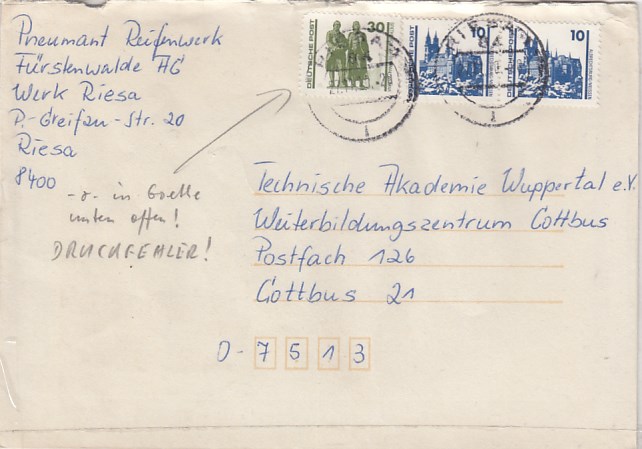 Pneumant Reifenwerk
Fürstenwalde AG
Werk Riesa
P.-Greifzu-Str. 20
Riesa
8400
-o- in Goethe
unten offen!
DRUCKFEHLER!
30
DEUTSCHE POST
10
DEUTSCHE POST
10
DEUTSCHE POST
RIESA
Technische Akademie Wuppertal e.V.
Weiterbildungszentrum Cottbus
Postfach 126
Cottbus 21
O-7513